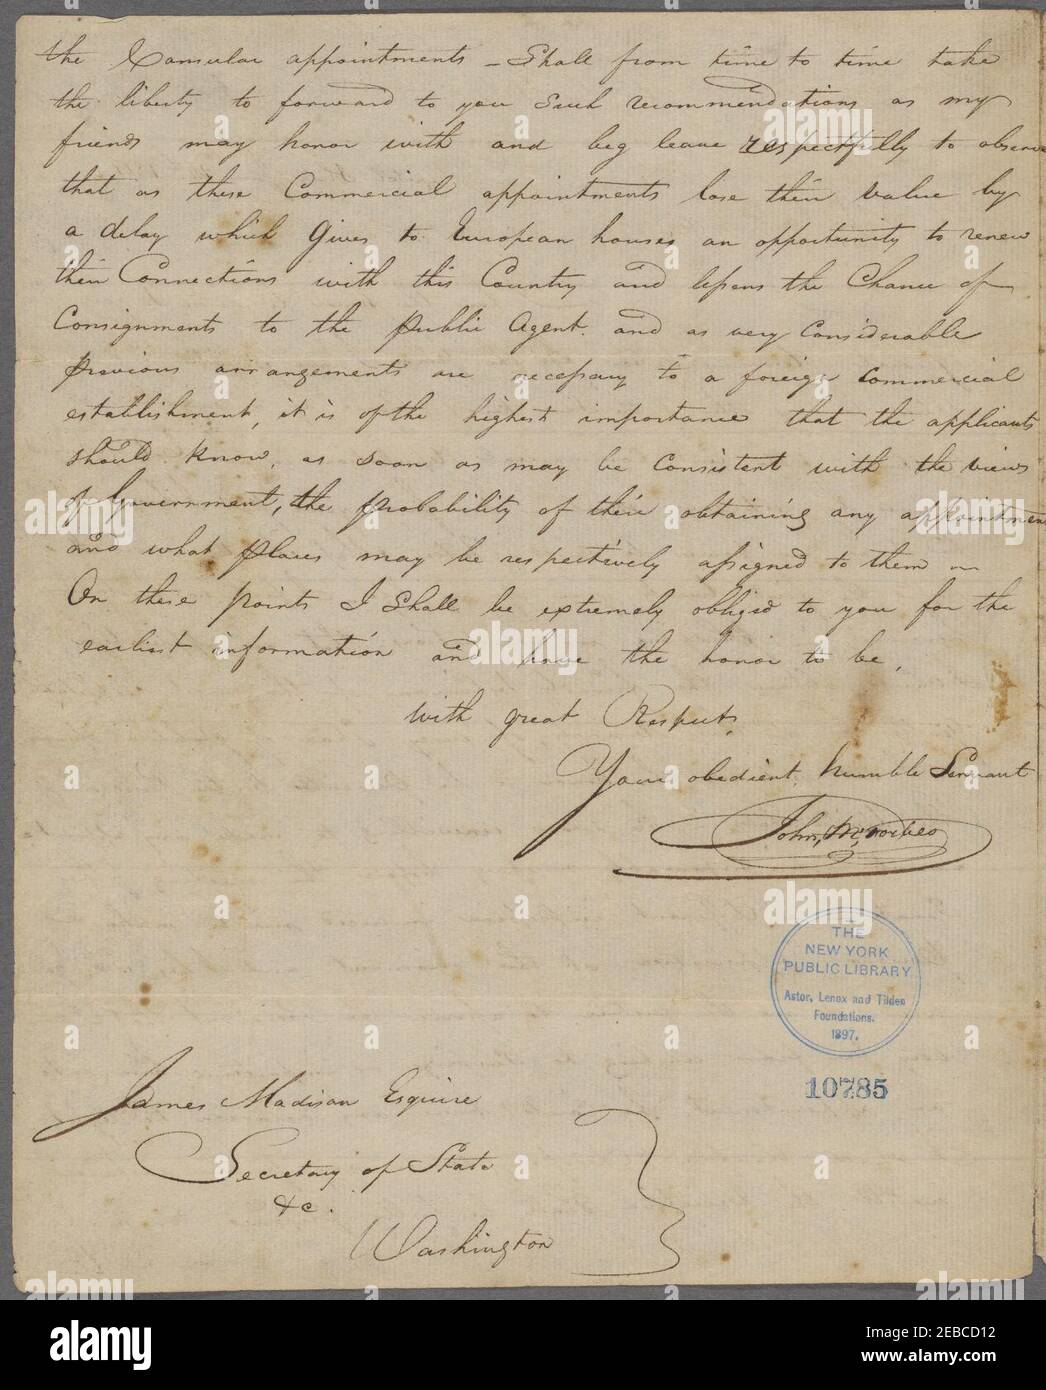 the Consular appointments – Shall from time to time take
the liberty to forward to you Such recommendations as my
friends may honor with and beg leave respectfully to observe
that as these Commercial appointments lose their Value by
a delay which Gives to European houses an opportunity to renew
their Connections with this Country and lessens the Chance of
Consignments to the public Agent. and as very Considerable
previous arrangements are necessary to a foreign Commercial
establishment, it is of the highest importance that the applicants
should know, as soon as may be Consistent with the views
of Government, the probability of their obtaining any appointment
and what places may be respectively assigned to them –
On these points I Shall be extremely obliged to you for the
earliest information and have the honor to be,
with great Respect,
Your obedient humble Servant
John, M, Forbes
THE
NEW YORK
PUBLIC LIBRARY
Astor, Lenox and Tilden
Foundations.
1897.
10785
James Madison Esquire
Secretary of State
&c.
Washington
alamy
Image ID: 2EBCD12
www.alamy.com